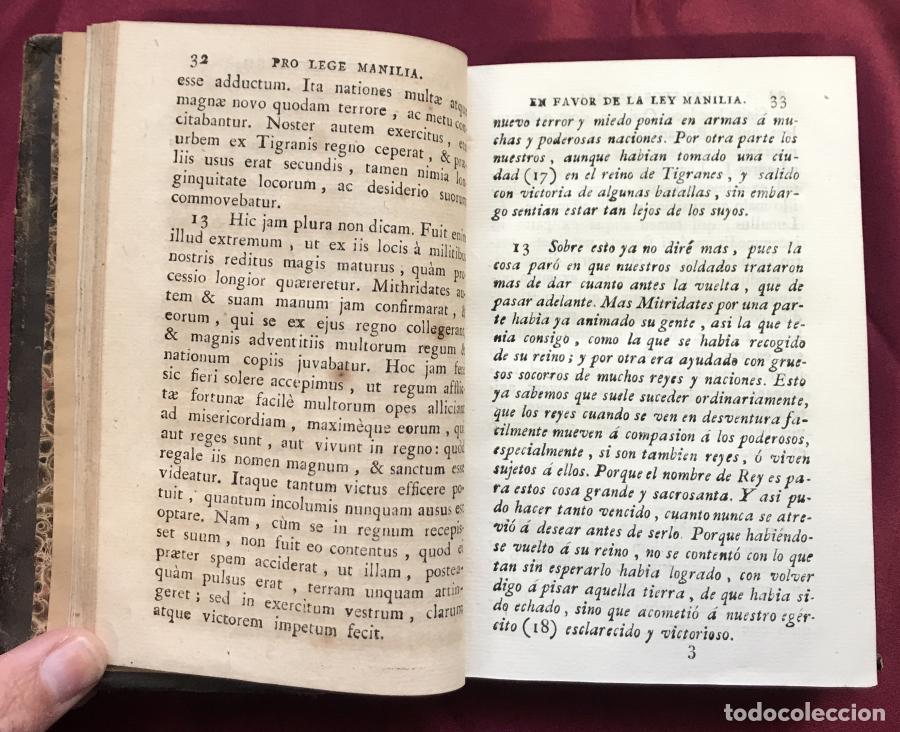 32 PRO LEGE MANILIA.
esse adductum. Ita nationes multæ atque
magnæ novo quodam terrore, ac metu con-
citabantur. Noster autem exercitus,
urbem ex Tigranis regno ceperat, & præ-
liis usus erat secundis, tamen nimia lon-
ginquitate locorum, ac desiderio suorum
commovebatur.
13 Hic jam plura non dicam. Fuit enim
illud extremum, ut ex iis locis à militibus
nostris reditus magis maturus, quàm pro-
cessio longior quæreretur. Mithridates au-
tem & suam manum jam confirmarat, &
eorum, qui se ex ejus regno collegerant,
& magnis adventitiis multorum regum &
nationum copiis juvabatur. Hoc jam fere
sic fieri solere accepimus, ut regum afflic-
tæ fortunæ facilè multorum opes alliciant
ad misericordiam, maximèque eorum, qui
aut reges sunt, aut vivunt in regno: quòd
regale iis nomen magnum, & sanctum esse
videatur. Itaque tantum victus efficere po-
tuit, quantum incolumis nunquam ausus est
optare. Nam, cùm se in regnum recepis-
set suum, non fuit eo contentus, quod ei
præter spem acciderat, ut illam, postea-
quàm pulsus erat, terram unquam attin-
geret; sed in exercitum vestrum, clarum
atque victorem impetum fecit.
EN FAVOR DE LA LEY MANILIA. 33
nuevo terror y miedo ponia en armas á mu-
chas y poderosas naciones. Por otra parte los
nuestros, aunque habian tomado una ciu-
dad (17) en el reino de Tigranes, y salido
con victoria de algunas batallas, sin embar-
go sentian estar tan lejos de los suyos.
13 Sobre esto ya no diré mas, pues la
cosa paró en que nuestros soldados trataron
mas de dar cuanto antes la vuelta, que de
pasar adelante. Mas Mitridates por una par-
te habia ya animado su gente, asi la que te-
nia consigo, como la que se habia recogido
de su reino; y por otra era ayudado con grue-
sos socorros de muchos reyes y naciones. Esto
ya sabemos que suele suceder ordinariamente,
que los reyes cuando se ven en desventura fa-
cilmente mueven á compasion á los poderosos,
especialmente, si son tambien reyes, ó viven
sujetos á ellos. Porque el nombre de Rey es pa-
ra estos cosa grande y sacrosanta. Y asi pu-
do hacer tanto vencido, cuanto nunca se atre-
vió á desear antes de serlo. Porque habiéndo-
se vuelto á su reino, no se contentó con lo que
tan sin esperarlo habia logrado, con volver
digo á pisar aquella tierra, de que habia si-
do echado, sino que acometió á nuestro egér-
cito (18) esclarecido y victorioso.
3
todocoleccion